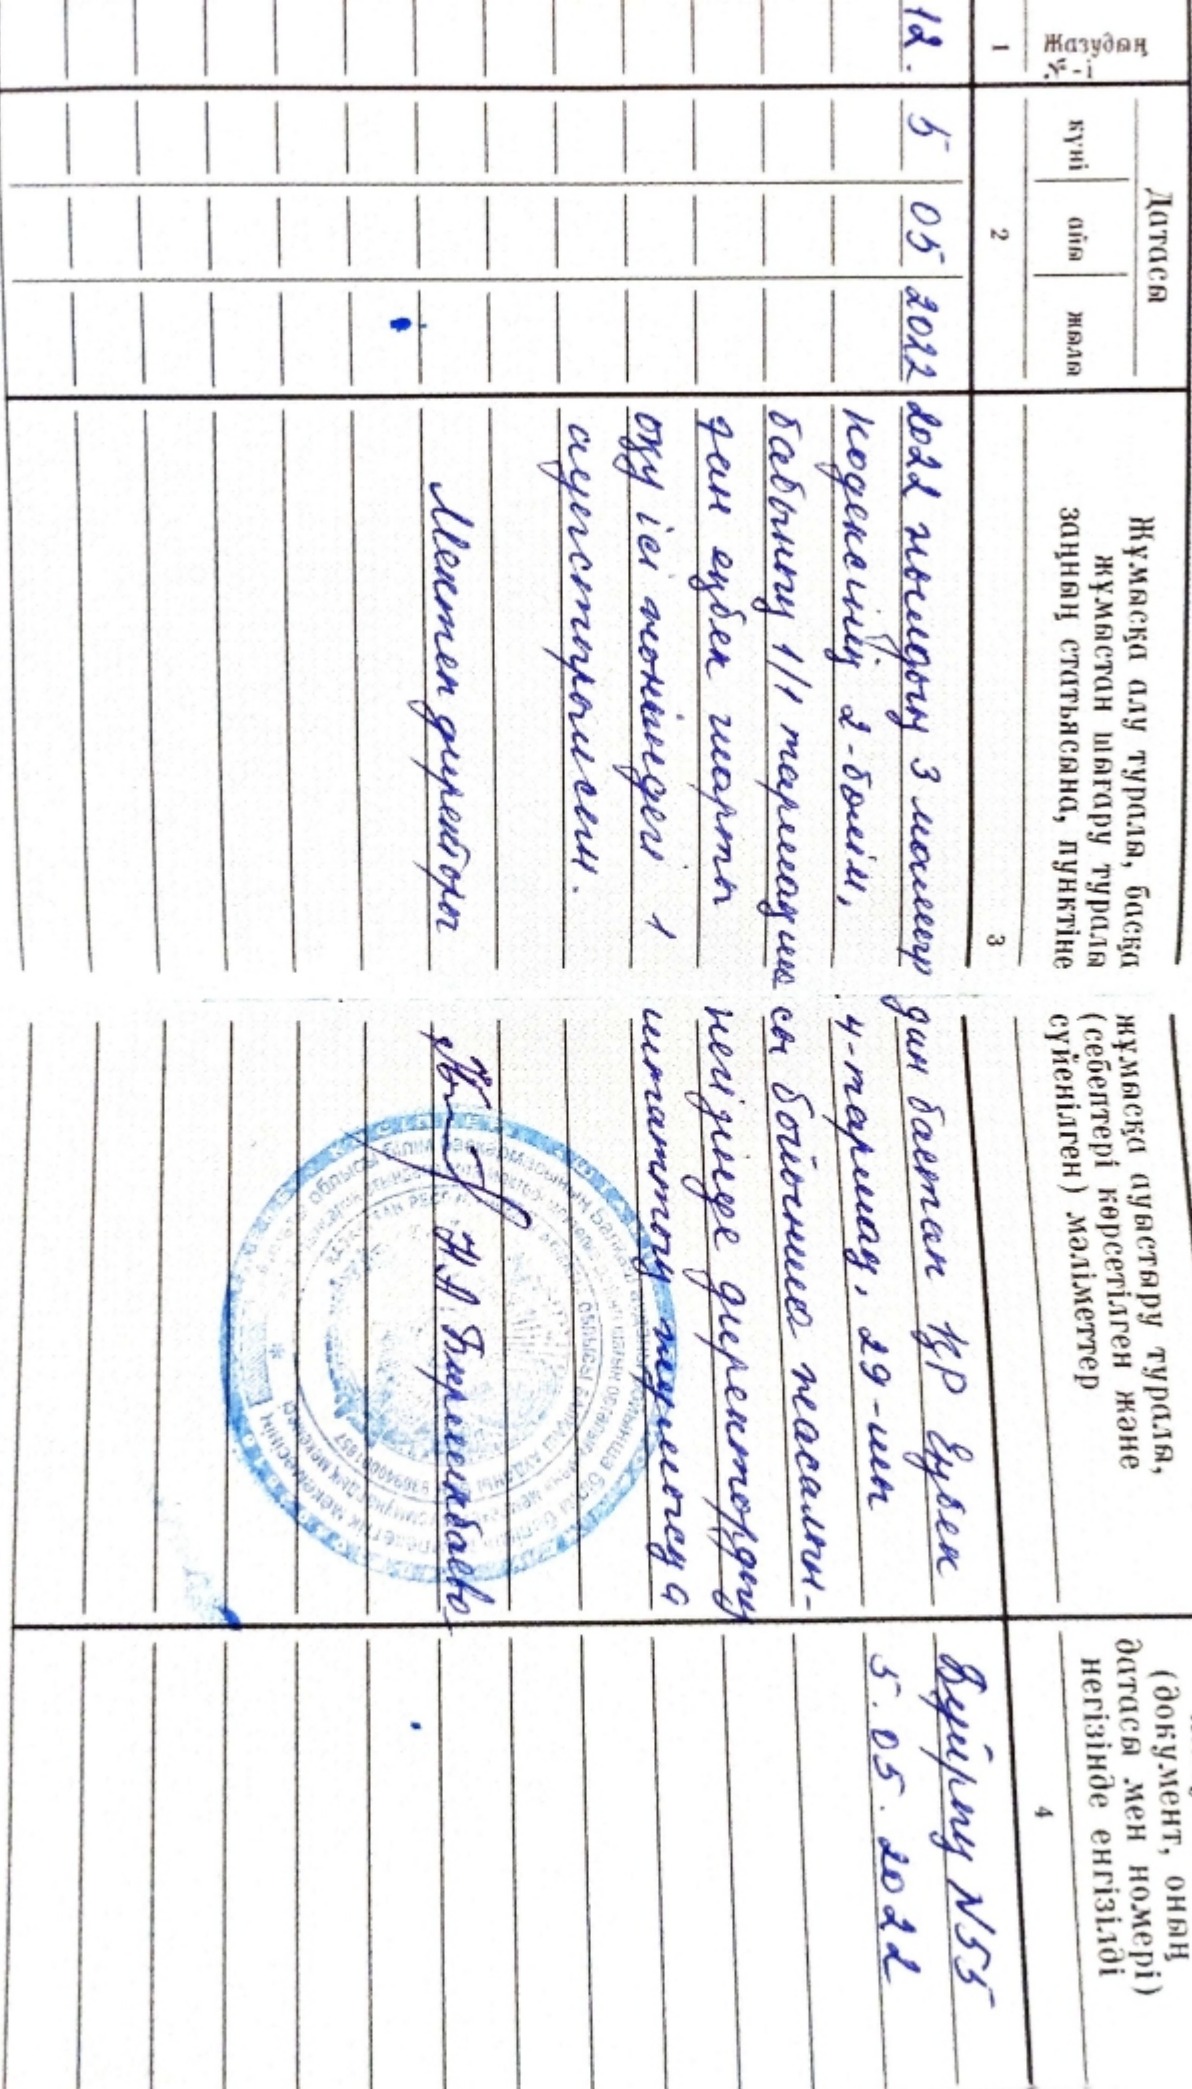 Жазудың №-і
Датасы
күні айы жылы
Жұмысқа алу туралы, басқа жұмысқа ауыстыру туралы,
жұмыстан шығару туралы (себептері көрсетілген және
заңның статьясына, пунктіне сүйенілген) мәліметтер
(документ, оның
датасы мен номері)
негізінде енгізілді
1 2 3 4
12. 5 05 2022 2022 жылдың 3 мамыр дан бастап ҚР Еңбек Бұйрық N55
кодексінің 2-бөлім, 4-тармақ, 29-шы 5.05.2022
бабының 1/1 тармақшасы бойынша жасалын-
ған еңбек шарты негізінде директордың
оқу ісі жөніндегі 1 штаттық
ауыстырылсын.
Мектеп директоры Н.А.